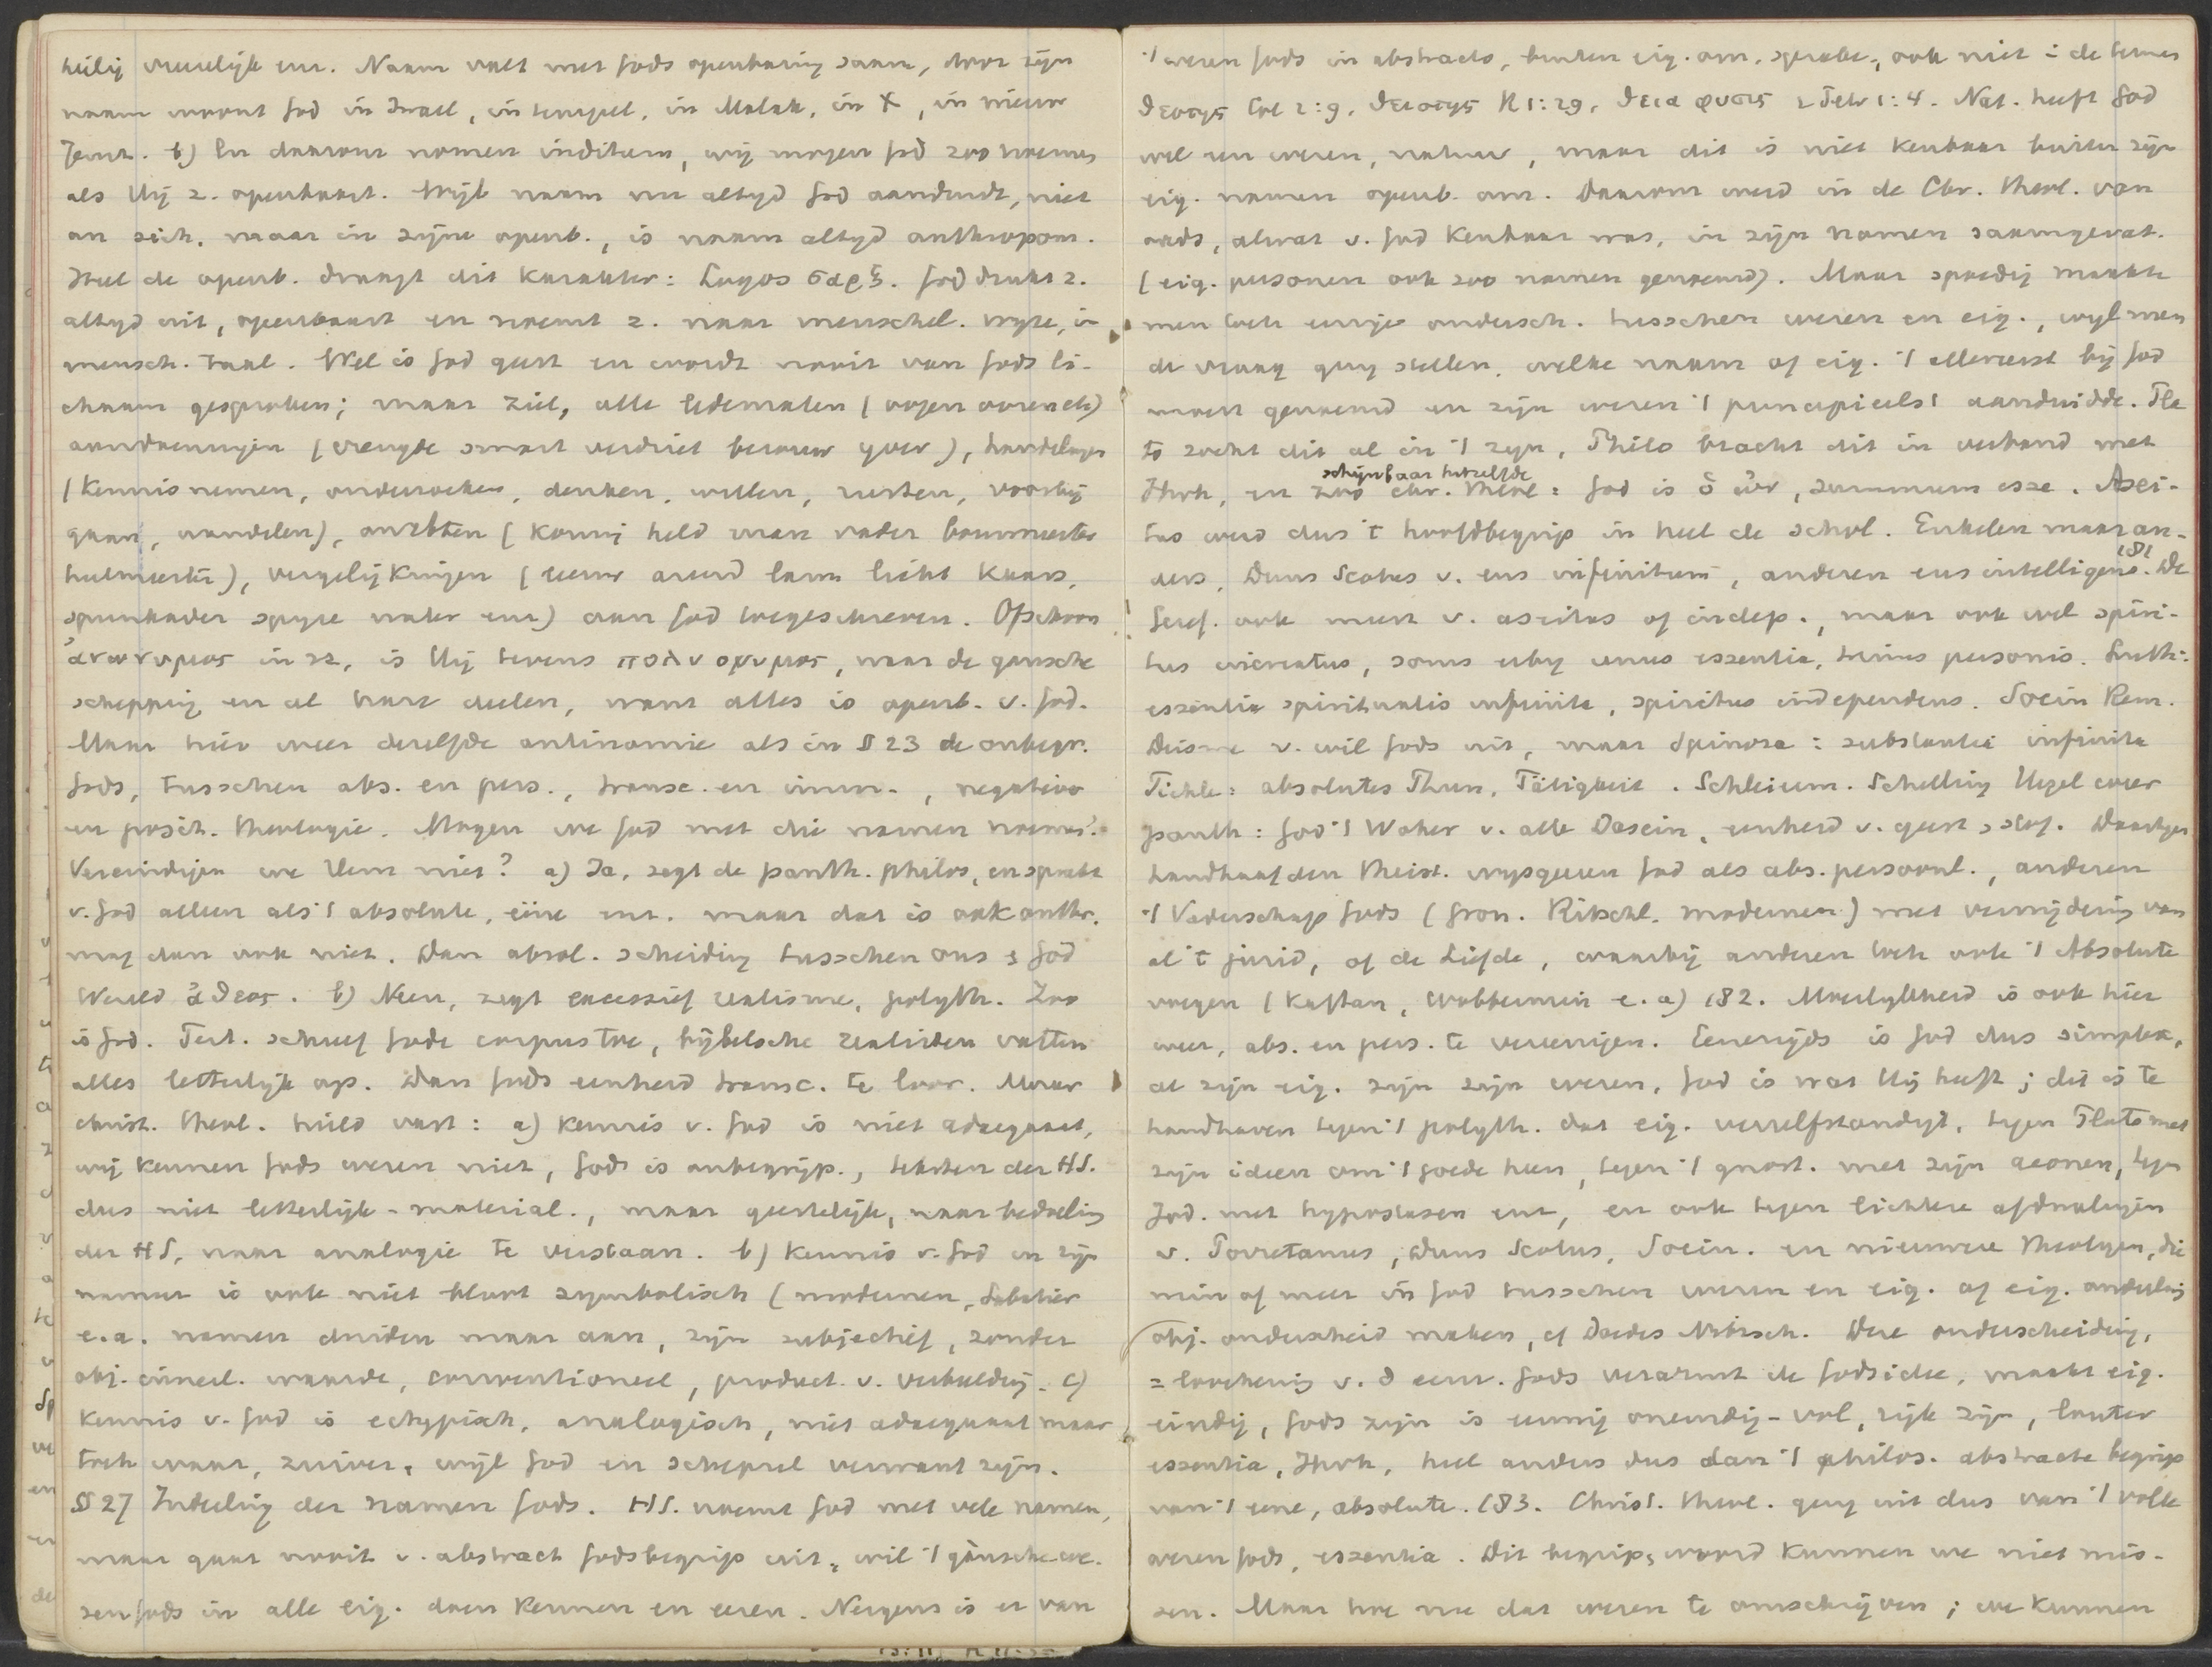 heilig vreselijk enz. Naam valt met Gods openbaring saam, door zijn
naam woont God in Israel, in tempel, in Malak, in X, in nieuw
Jeruz. b) En daarom nomen inditum, wij mogen God zoo noemen
als Hij z. openbaart. Wijl naam nu altijd God aanduidt, niet
an sich, maar in zijne openb., is naam altijd anthropom.
Heel de openb. draagt dit karakter: Logos σαρξ. God drukt z.
altijd uit, openbaart en noemt z. naar menschel. wijze, in
mensch. taal. Wel is God geest en wordt nooit van Gods li-
chaam gesproken; maar ziel, alle ledematen (oogen ooren etc)
aandoeningen (vreugde smart verdriet berouw ijver), handelingen
(kennis nemen, onderzoeken, denken, willen, rusten, voorbij
gaan, wandelen), ambten (koning held man vader bouwmeester
heelmeester), vergelijkingen (leeuw arend lam licht kaars,
springader spijze water enz) aan God toegeschreven. Ofschoon
ἀνωνυμος in zz, is Hij tevens πολυονυμος, naar de gansche
schepping en al hare deelen, want alles is openb. v. God.
Maar hier weer dezelfde antinomie als in § 23 de onbegr.
Gods, tusschen abs. en pers., transc. en imm., negatieve
en posit. theologie. Mogen we God met die namen noemen?
Vereindigen we Hem niet? a) Ja, zegt de panth. philos, en spreekt
v. God alleen als 't absolute, eéne enz. maar dat is ook anthr.
mag dan ook niet. Dan absol. scheiding tusschen ons & God
Wereld ἀθεος. b) Neen, zegt excessief realisme, polyth. Zoo
is God. Tert. schreef Gode corpus toe, bijbelsche realisten vatten
alles letterlijk op. Dan Gods eenheid transc. te loor. Maar
christ. theol. hield vast: a) Kennis v. God is niet adaequaat,
wij kennen Gods wezen niet, God is onbegrijp., teksten der HS.
dus niet letterlijk-material., maar geestelijk, naar bedoeling
der HS, naar analogie te verstaan. b) Kennis v. God en zijn
namen is ook niet bloot symbolisch (modernen, Sabatier
e.a. namen duiden maar aan, zijn subjectief, zonder
obj. inneel. waarde, conventioneel, product v. verbeelding. c)
Kennis v. God is echypisch, analogisch, niet adaequaat maar
toch waar, zuiver, wijl God en schepsel verwant zijn.
§ 27 Indeeling der namen Gods. HS. noemt God met vele namen,
maar gaat nooit v. abstract Godsbegrip uit, wil 't gansche we-
zen Gods in alle eig. doen kennen en eeren. Nergens is er van
't wezen Gods in abstracto, buiten eig. om, sprake, ook niet in de termen
θεοτης Col 2:9, θειοτης R 1:29, θεια φυσις 2 Petr 1:4. Nat. heeft God
wel een wezen, natuur, maar dit is niet kenbaar buiten zijn
eig. namen openb. om. Daarom werd in de Chr. theol. van
ouds, alwat v. God kenbaar was, in zijn namen saamgevat.
(eig. personen ook zoo namen genoemd). Maar spoedig maakte
men toch eenige ondersch. tusschen wezen en eig., wijl men
de vraag ging stellen, welke naam of eig. 't allereerst bij God
moest genoemd en zijn wezen 't principieelst aanduidde. Pla
to zocht dit al in 't zijn, Philo bracht dit in verband met
Jhvh, en zoo schijnbaar hetzelfde chr. theol: God is ὁ ὠν, summum esse. Asei-
tas werd dus 't hoofdbegrip in heel de schol. Enkelen maar an-
ders, Duns Scotus v. ens infinitum, anderen ens intelligens. 181 De
Geref. ook meest v. aseitas of indep., maar ook wel spiri-
tus increatus, soms erbij unus essentia, trinus personis. Luth:
essentia spiritualis infinita, spiritus independens. Socin Rem.
Deisme v. wil Gods uit, maar Spinoza: substantia infinita
Fichte: absolutes Thun, Tätigkeit. Schleierm. Schelling Hegel weer
panth: God 't Woher v. alle Dasein, eenheid v. geest & stof. Daartegen
handhaafden theist. wijsgeeren God als abs. persoonl., anderen
't Vaderschap Gods (Gron. Ritschl. modernen) met vermijding van
al 't jurid, of de Liefde, waarbij anderen toch ook 't Absolute
voegen (Kaftan, Wobbermin e.a) 182. Moeilijkheid is ook hier
weer, abs. en pers. te vereenigen. Eenerzijds is God dus simplex,
al zijn eig. zijn zijn wezen, God is wat Hij heeft; dit is te
handhaven tegen 't polyth. dat eig. verzelfstandigt, tegen Plato met
zijn ideen om 't goede heen, tegen 't gnost. met zijn aeonen, tegen
Jod. met hypostasen enz, en ook tegen lichtere afdwalingen
v. Porretanus, Duns Scotus, Socin. en nieuwere theologen, die
min of meer in God tusschen wezen en eig. of eig. onderling
obj. onderscheid maken, cf Doedes Nitzsch. Deze onderscheiding,
= loochening v. d eenv. Gods verarmt de Godsidee, maakt eig.
eindig, Gods zijn is eeuwig oneindig-vol, rijk zijn, louter
essentia, Jhvh, heel anders dus dan 't philos. abstracte begrip
van 't eene, absolute. 183. Christ. theol. ging uit dus van 't volle
wezen Gods, essentia. Dit begrip, woord kunnen we niet mis-
sen. Maar hoe nu dat wezen te omschrijven; we kunnen